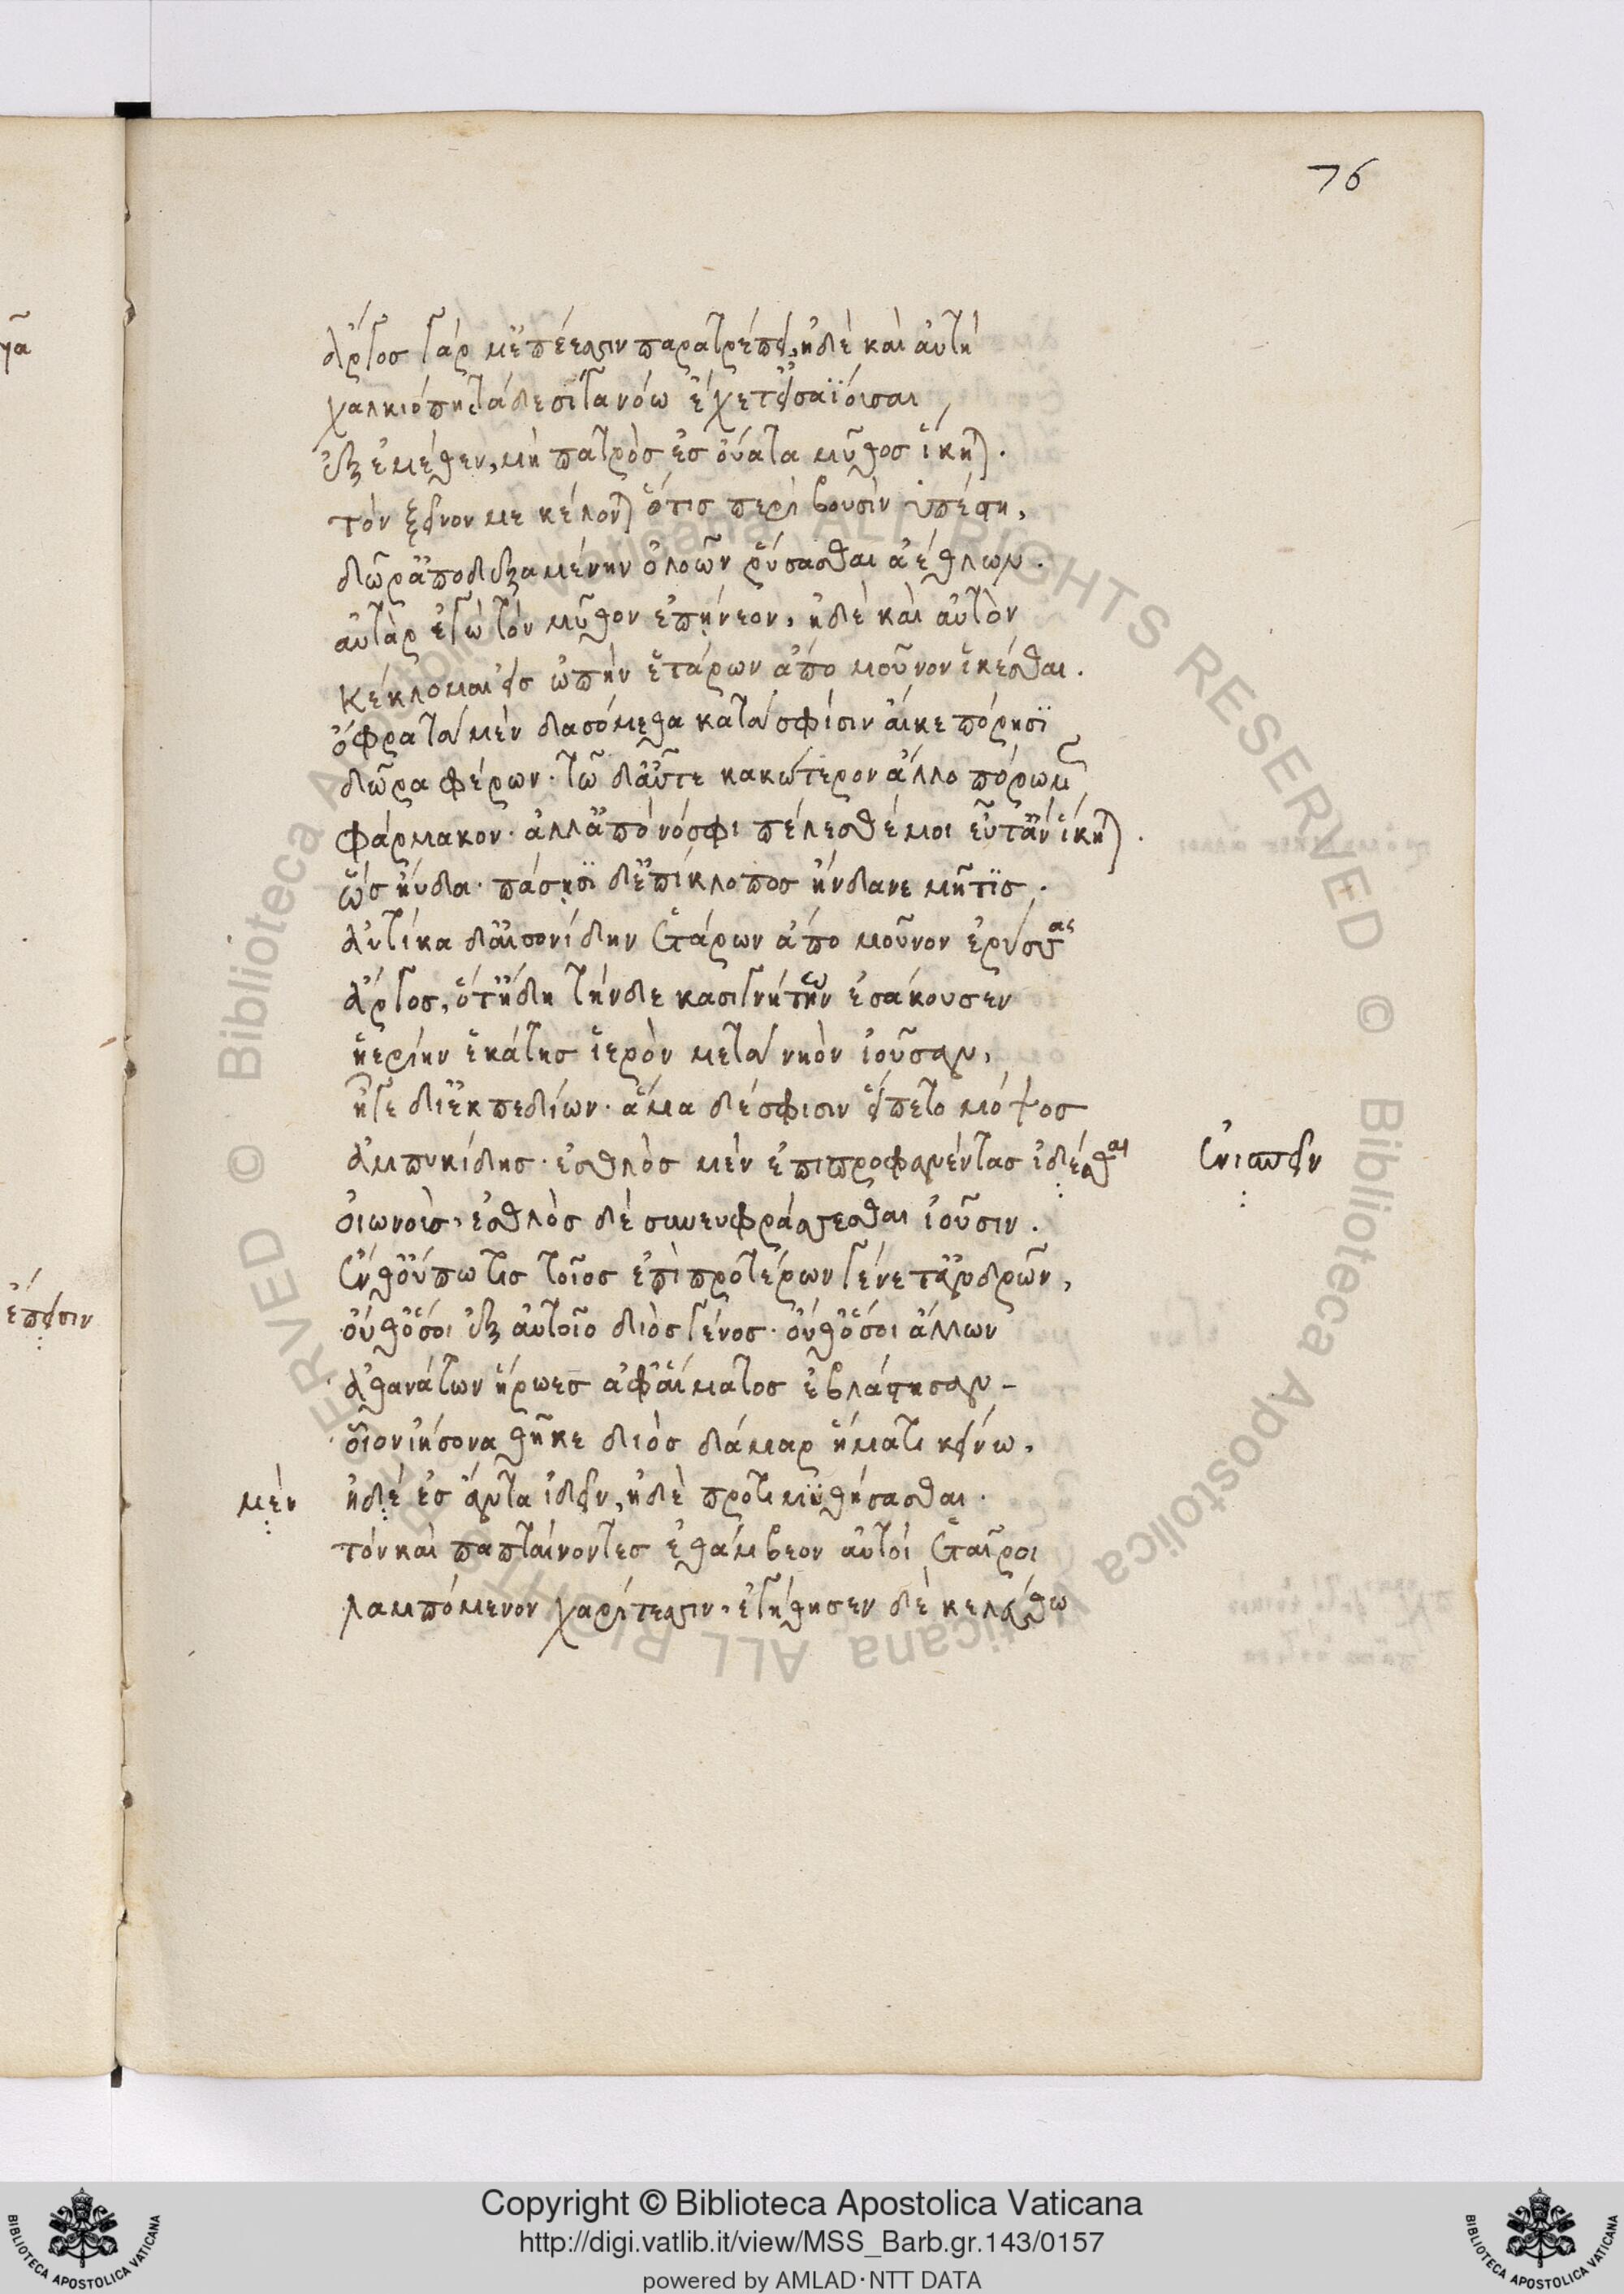 76
ἄργος γάρ μ' ἐπέεσσιν παρατρέπει, ἠδὲ καὶ αὐτὴ
χαλκιόπη. τάδε σῖγα νόω ἔχετ' εἰσαΐουσαι
ἐξ ἐμέθεν, μὴ πατρὸς ἐς οὔατα μῦθος ἵκηται.
τὸν ξεῖνον με κέλονται ὅτις περὶ βουσὶν ὑπέστη,
δῶρ' ἀποδεξαμένην ὀλοῶν ῥύσασθαι ἀέθλων.
αὐτὰρ ἐγὼ τὸν μῦθον ἐπῄνεον, ἠδὲ καὶ αὐτὸν
κέκλομαι εἰς ὠπὴν ἑτάρων ἄπο μοῦνον ἱκέσθαι.
ὄφρα τὰ μὲν δασόμεθα κατὰ σφίσιν αἴκε πόρησϊ
δῶρα φέρων. τῶ δ' αὖτε κακώτερον ἄλλο πόρωμεν
φάρμακον. ἀλλ' ἀπὸ νόσφι πέλεσθέ μοι εὖτ' ἂν ἵκηται.
ὣς ηὔδα. πάσῃσϊ δ' ἐπίκλοπος ἥνδανε μῆτϊς.
αὐτίκα δ' αἰσονίδην ἑτάρων ἄπο μοῦνον ἐρύσσας
ἄργος, ὅτ' ἤδη τήνδε κασιγνήτων ἐσάκουσεν
ἠερίην ἑκάτης ἱερὸν μετὰ νηὸν ἰοῦσαν,
ἦγε διὲκ πεδίων. ἅμα δέ σφισιν εἵπετο μόψος
ἀμπυκίδης. ἐσθλὸς μὲν ἐπιπροφανέντας ἰδέσθαι
ἐνισπεῖν
οἰωνοὺς, ἐσθλὸς δὲ συνευφράσσεσθαι ἰοῦσιν.
ἔνθ' οὔπω τις τοῖος ἐπὶ προτέρων γένετ' ἀνδρῶν,
οὔθ' ὅσοι ἐξ αὐτοῖο διὸς γένος. οὔθ' ὅσοι ἄλλων
ἀθανάτων ἥρωες ἀφ' αἵματος ἐβλάστησαν
οἷον ἰήσονα θῆκε διὸς δάμαρ ἤματι κείνω,
μὲν
ἠδὲ ἐς ἄντα ἰδεῖν, ἠδὲ προτιμυθήσασθαι.
τὸν καὶ παπταίνοντες ἐθάμβεον αὐτοὶ ἑταῖροι
λαμπόμενον χαρίτεσσιν. ἐγήθησεν δὲ κελεύθω
ἔπεισιν
© Biblioteca Apostolica Vaticana ALL RIGHTS RESERVED
Copyright © Biblioteca Apostolica Vaticana
http://digi.vatlib.it/view/MSS_Barb.gr.143/0157
powered by AMLAD·NTT DATA
BIBLIOTECA APOSTOLICA VATICANA
BIBLIOTECA APOSTOLICA VATICANA